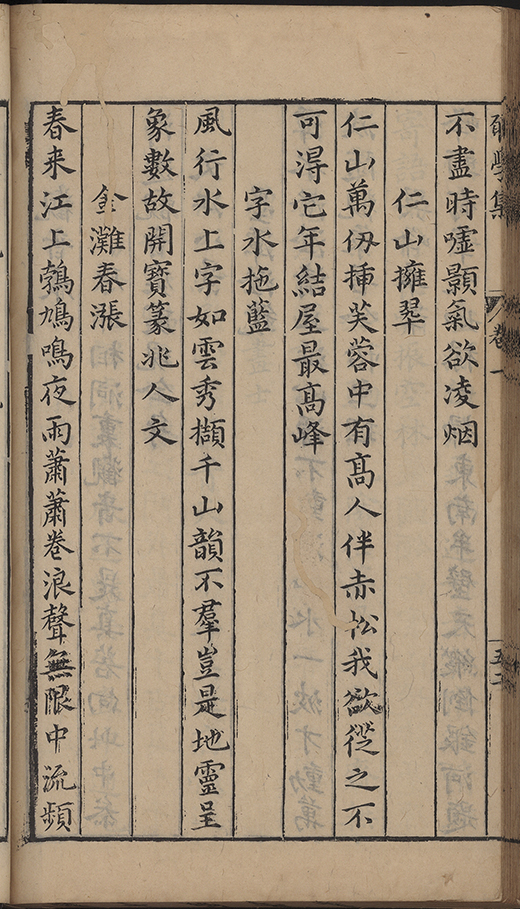 學集
卷一
五十
不盡時噓顥氣欲凌烟
仁山擁翠
仁山萬仭揷芙蓉中有髙人伴赤松我欲從之不
可得它年結屋最髙峰
字水拖藍
風行水上字如雲秀擷千山韻不羣豈是地靈呈
象數故開寶篆兆人文
金灘春漲
春来江上鵓鳩鳴夜雨蕭蕭卷浪聲無限中流頻